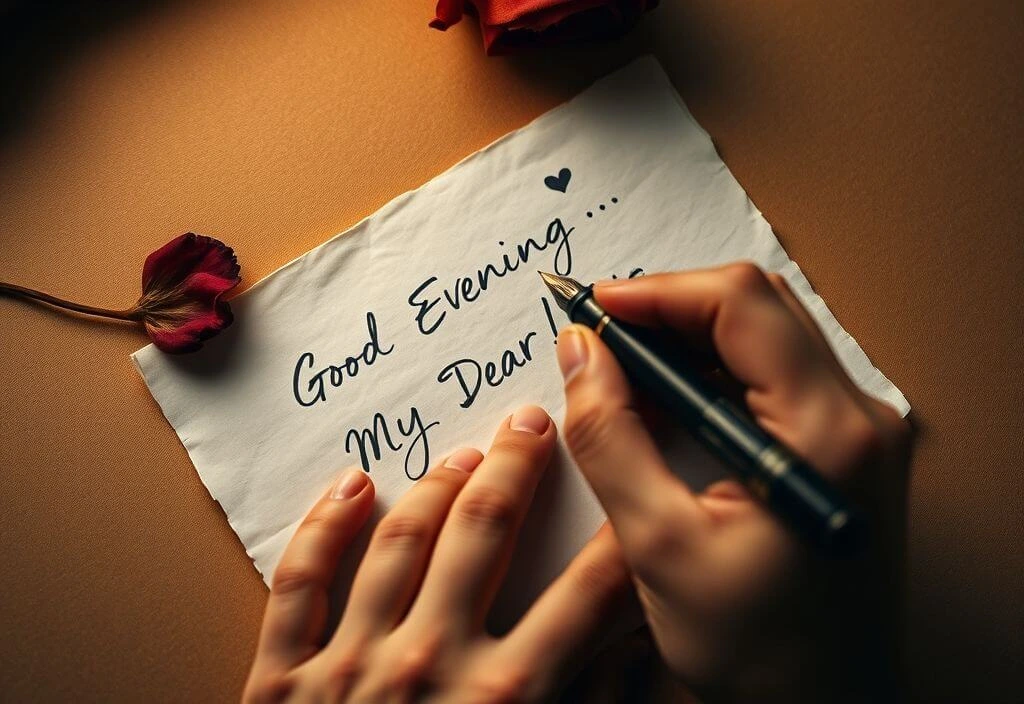 Good Evening ...
My Dear!